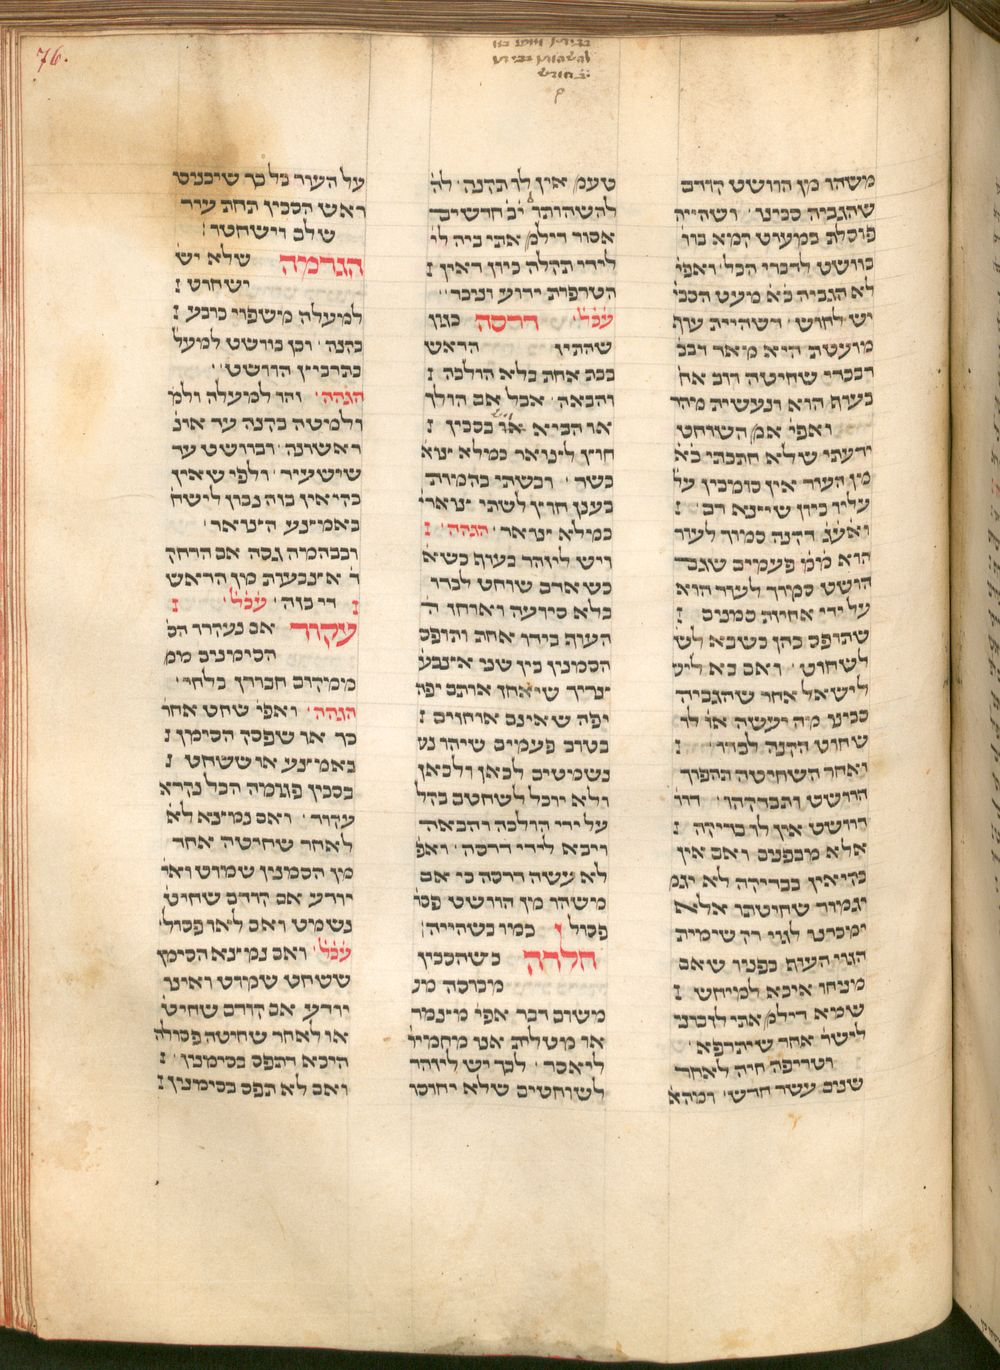 76.
משהו מן הוושט קודם
שהגביה סכינו׳ ושהייה
פוסלת במעוט קמא כוו׳
בוושט לדברי הכל׳ ואפי׳
לא הגביה כא מעט הסכי׳
יש לחוש׳ דשהיית עוף
מועטת היא מאד דבכ
דבכדי שחיטה רוב אח׳
בעוף הוא ונעשית מהר
ואפי׳ אם השוחט
ידעתי שלא חתכתי כא
מן העור אין סומכין על
עליו כיון שיצא דם׳
הקנה סמוך לעור
הוא פעמים שגם
הושט סמוך לעור הוא
על ידי אחיזת סמנים
שתופס בהן כשבא לש
לשחוט׳ ואם בא ליש
לישאל אחר שהגביה
סכינו מה יעשה או׳ לו
שחוט הקנה לבדו׳
ואחר השחיטה תהפוך
הוושט ותבדקהו׳ דוו
דוושט אין לו בדיקה
אלא מבפנים ואם אין
בקי אין בבדיקה לא יגמ
יגמור שחיטתו אלא
ימכרנו לגוי ויה שימית
הגוי העוף בפניו שאם
מניחו איכא למיחש
שמא דילמ׳ אתי לזבוני
לישר׳ אחר שיתרפא׳
וטריפה חיה לאחר
שנים עשר חדש׳ ומהא׳
טעמ׳ אין לו תקנה׳ לה׳
להשהותו׳ י׳ב׳ חדשים
אסור דילמ׳ אתי ביה לי׳
לידי תקלה כיון דאין
הטרפות ידוע וניכר׳
ע׳כ׳ל׳ דרסה כגון
שהתיז הראש
בבת אחת בלא הולכה
והבאה׳ אבל אם הולך
או הביא או בסכין
חוץ לצואר כמלא צוא
כשר׳ ובשתי בהמות
בענן חוץ לשתי צוארי
כמלא צואר׳ הגהה׳
ויש ליזהר בעוף כשא
כשאדם שוחט לבדו
בלא סיועה ואוחז ה׳
העוף בידו אחת ותופס
הסמנין בין שני אצבע
צריך שיאחז אותם יפה
יפה שאינם אוחזים
בטוב פעמים שיהו נש
נשמטים לכאן ולכאן
ולא יוכל לשחטם בקל
על ידי הולכה והבאה
ויבא לידי דרסה׳ ואפ׳
לא עשה דרסה כי אם
משהו מן הוושט פסו
פסול כמו בשהייה׳
חלדה כשהסכין
מכוסה מע
משום דבר אפי׳ מ׳צמר
או מטלית אנו מחמיר׳
ליאסר׳ לכך יש ליזהר
לשוחטים שלא יחוסו
על העור כל כך שיכניסו
ראש הסכין תחת עור
שלם וישחטו׳
הגרמה שלא יש
ישחוט
למעלה משפוי כובע
בקנה׳ וכן בוושט למעל
בתרביץ הוושט׳
הגהה׳ והו׳ למעלה ולמ
ולמטה בקנה עד אונ׳
ראשונה׳ ובוושט עד
שישעיר׳ ולפי שאין
בקי אין בזה נכון לישח
באמצע הצואר׳
ובבהמה גסה אם הרחק
ד׳ אצבעות מן הראש
די בזה׳ ע׳כ׳ל׳
עקור אם נעקרו הס
הסימנים ממ
ממיקום חבורן בלחי׳
הגהה׳ ואפי׳ שחט אחר
כך או שפסק הסימן
באמצע או ששחט
בסכין פגומה הכל נקרא
עקור׳ ואם נמצא לא
לאחר שחיטה אחד
מן הסמנין שמוט ואי׳
יודע אם קודם שחיט׳
נשמט ואם לאו פסול׳
ע׳כ׳ל׳ ואם נמצא הסימן
ששחט שמוט ואינו
יודע אם קודם שחיט׳
או לאחר שחיטה פסולה
היכא דתפס בסימנין׳
ואם לא תפס בסימנין